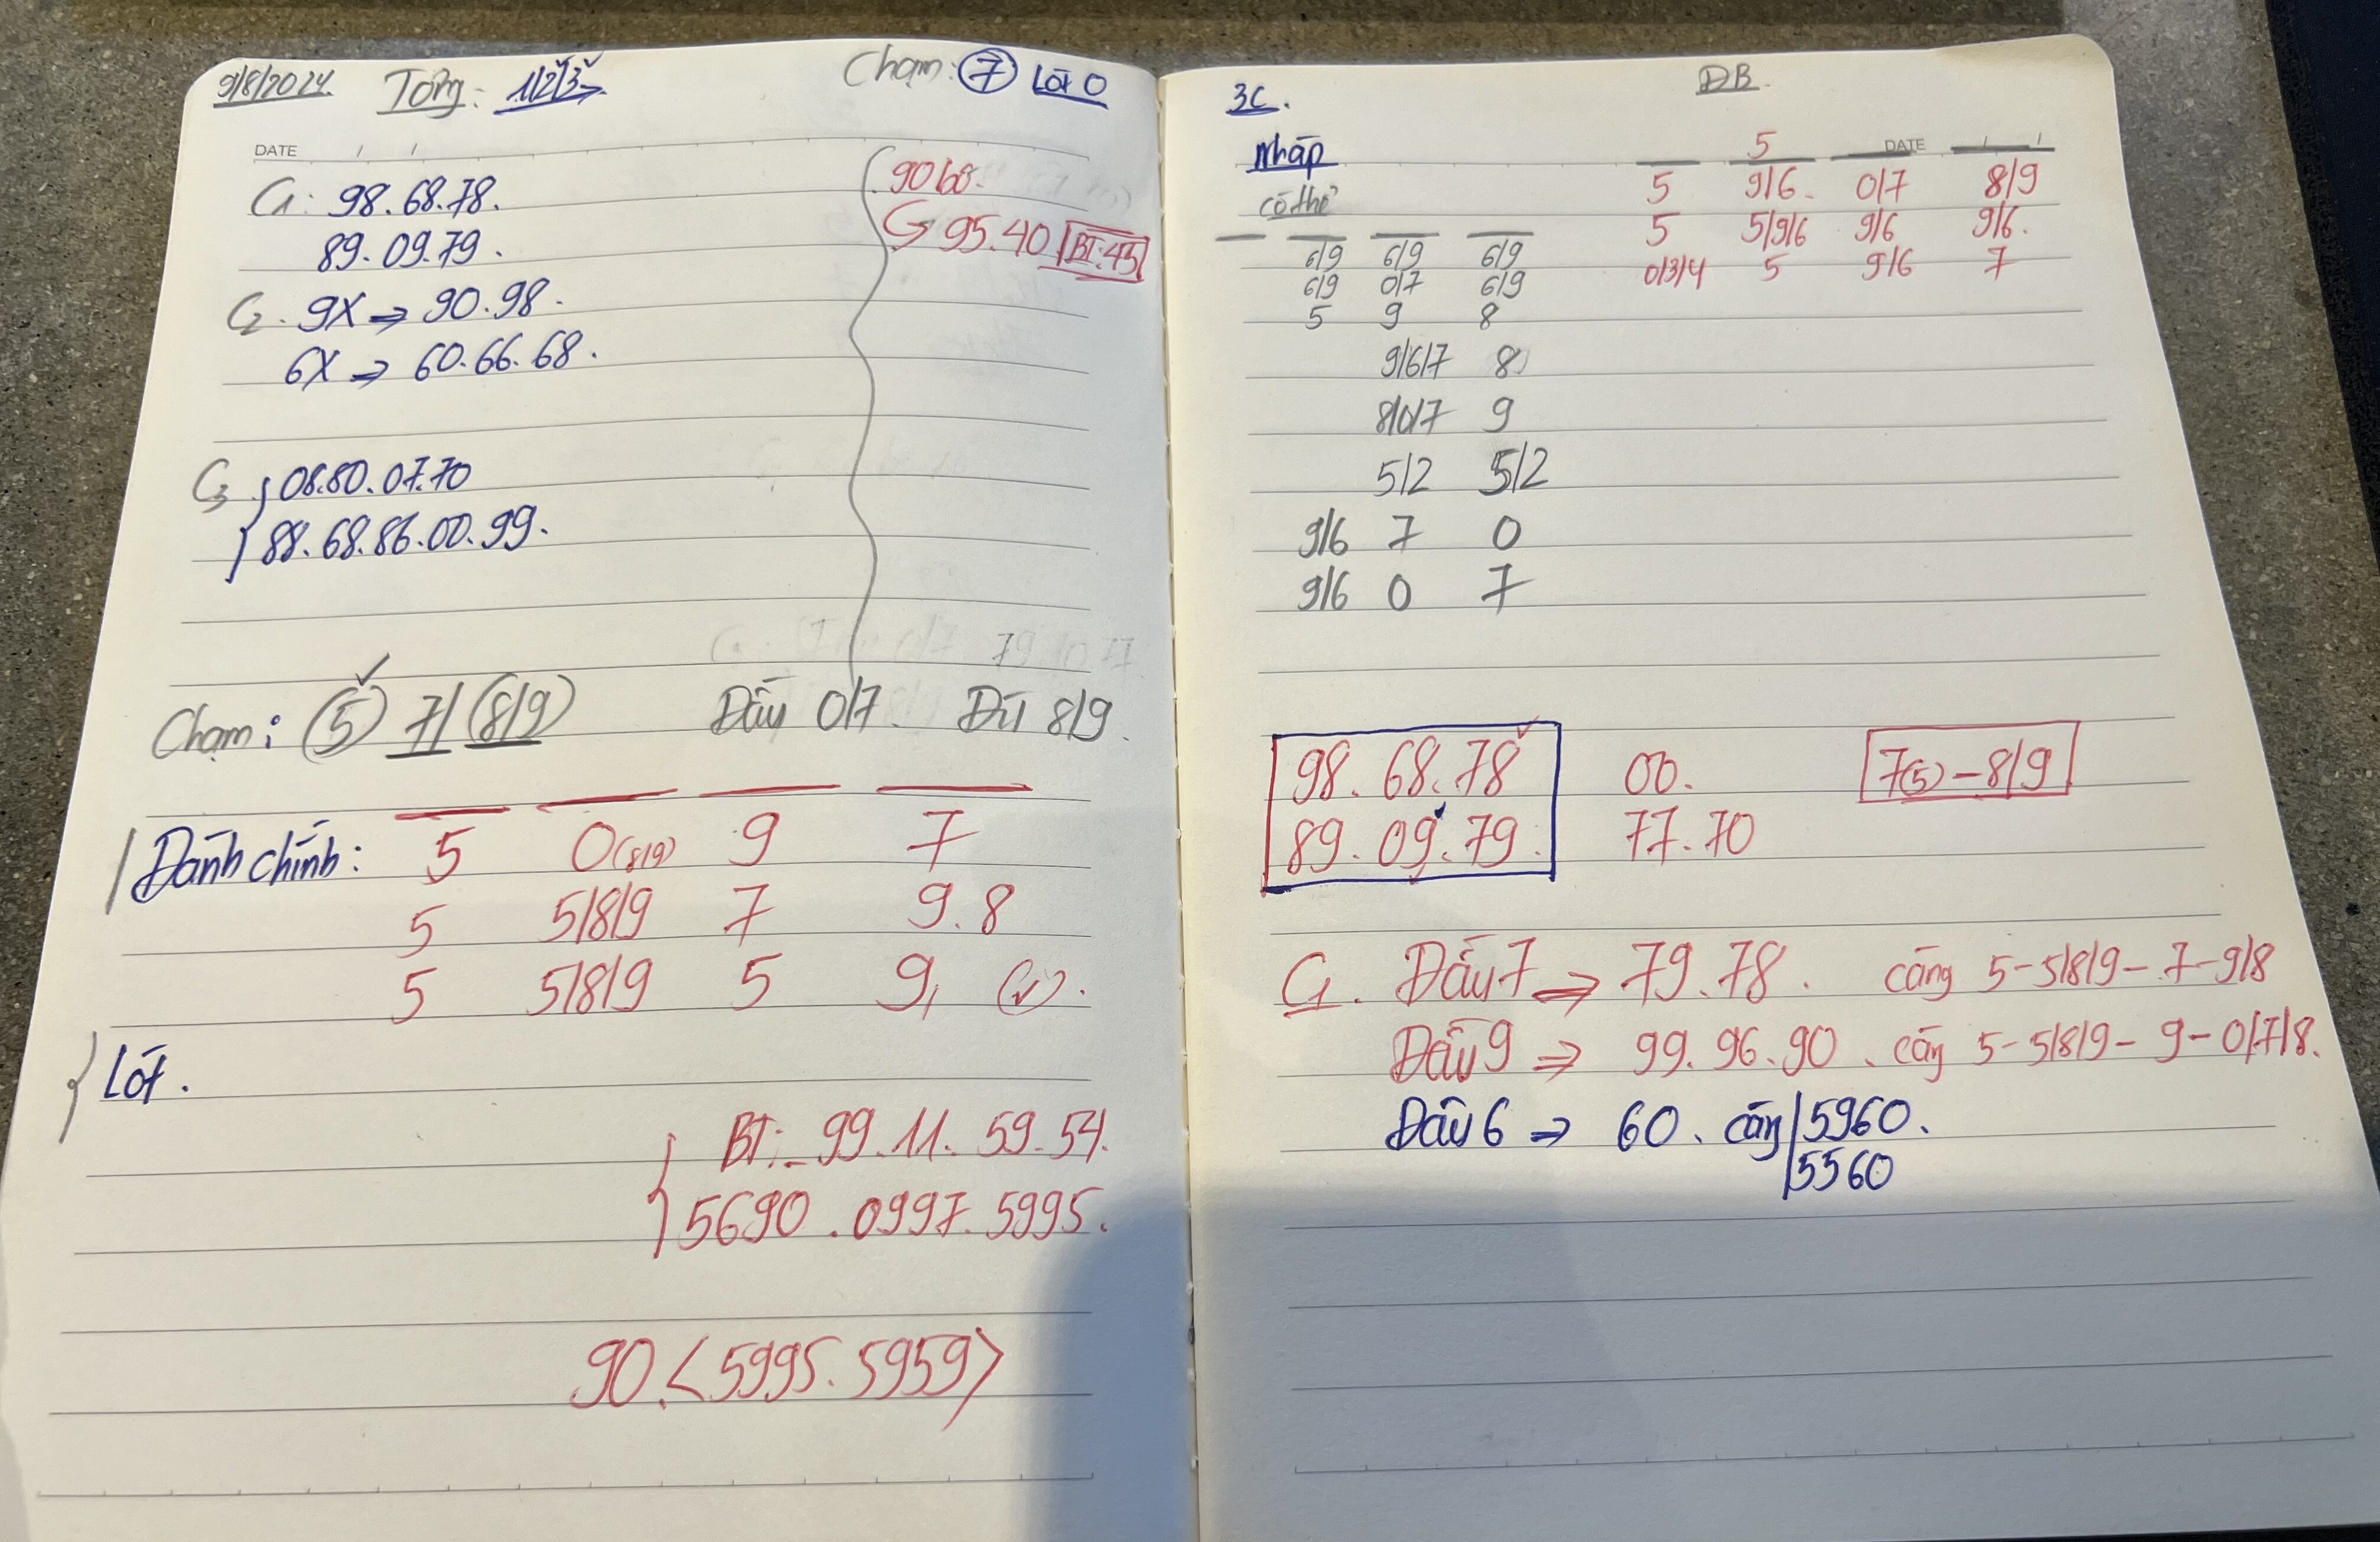 9/8/2024 Tổng: 1/2/3 Chạm: 7 Lót 0
DATE / /
C1: 98.68.78.
89.09.79.
C2. 9X ⇒ 90.98.
6X ⇒ 60.66.68.
C3 { 08.80.07.70
88.68.86.00.99.
9060.
95.40 BT:45
Chạm: 5 7/(8/9) Đầu 0/7. Đít 8/9.
Đánh chính: 5 0(8/9) 9 7
5 5/8/9 7 9.8
5 5/8/9 5 9, (✓).
Lót.
BT: 99.11.59.54.
5690.0997.5995.
90.<5995.5959>
3C. ĐB.
Nháp
có thể
6/9 6/9 6/9
6/9 0/7 6/9
5 9 8
9/6/7 8
8/0/7 9
5/2 5/2
9/6 7 0
9/6 0 7
DATE / /
5
5 9/6. 0/7 8/9
5 5/9/6 9/6 9/6.
0/3/4 5 9/6 7
98.68.78 00. 7(5)-8/9
89.09.79. 77.70
C1. Đầu 7 ⇒ 79.78. càng 5-5/8/9-7-9/8
Đầu 9 ⇒ 99.96.90. càng 5-5/8/9-9-0/7/8.
Đầu 6 ⇒ 60. càng 5960.
5560